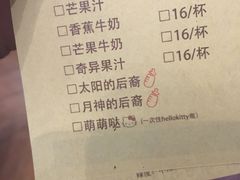 □芒果汁
□香蕉牛奶 □16/杯
□芒果牛奶 □16/杯
□奇异果汁 □16/杯
□太阳的后裔
□月神的后裔
□萌萌哒 (一次性hellokitty瓶)